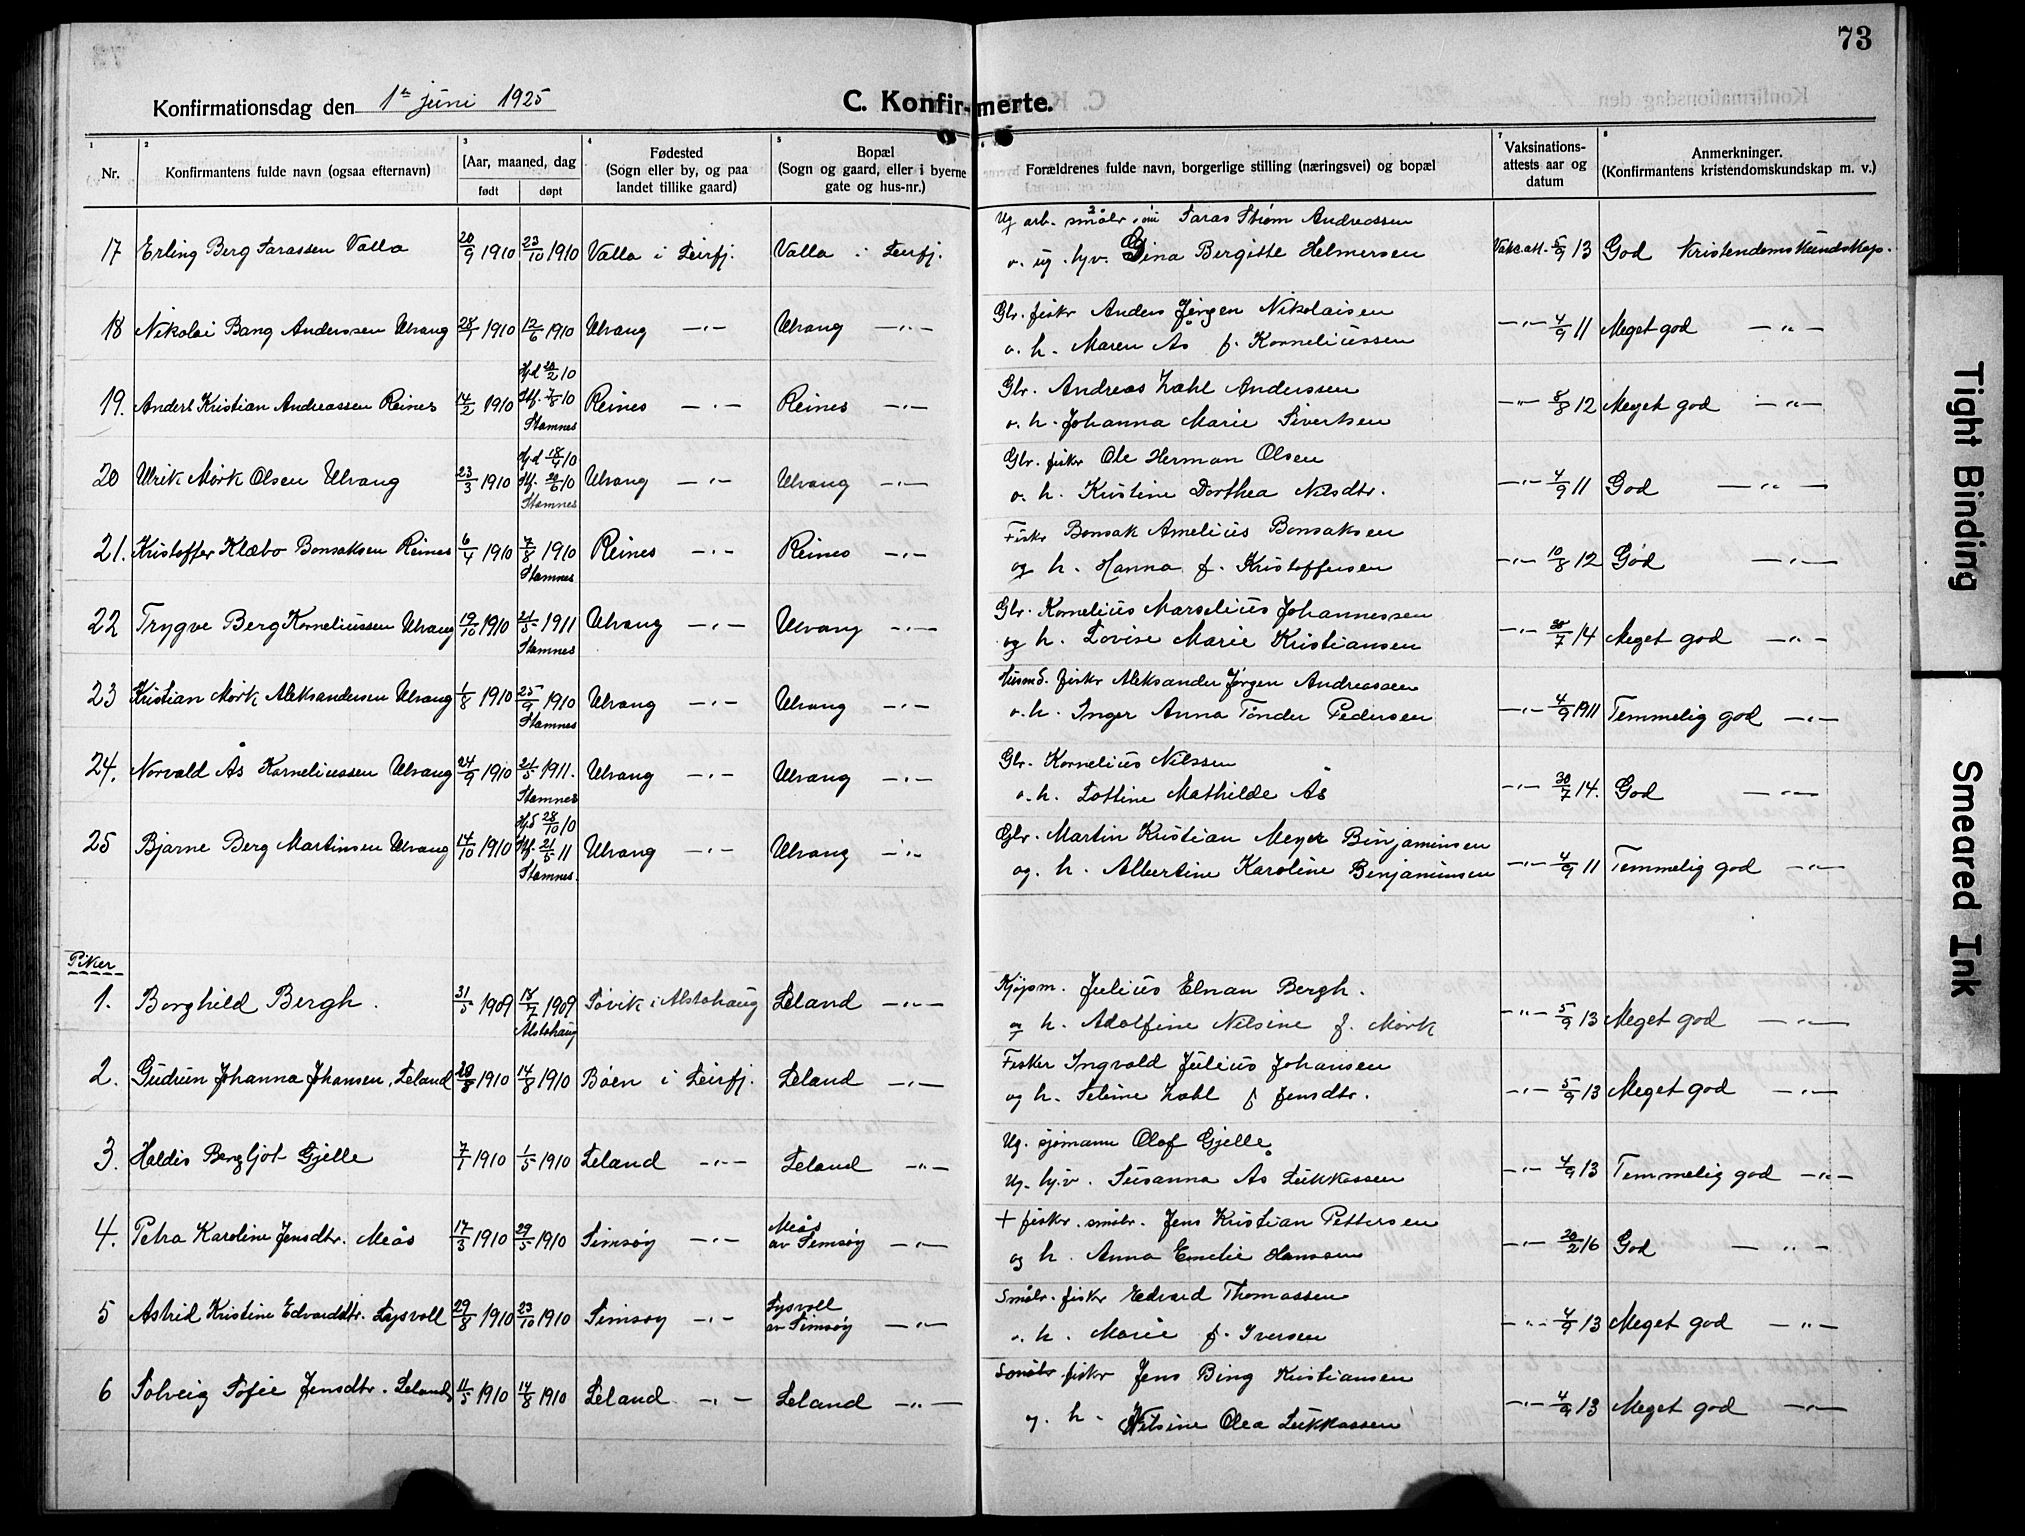 73
Konfirmationsdag den 1ste juni 1925
C. Konfir-merte.
1 2 3 4 5 6 7 8
Nr.
Konfirmantens fulde navn (ogsaa efternavn)
Aar, maaned, dag
født døpt
Fødested (Sogn eller by, og paa landet tillike gaard)
Bopæl (Sogn og gaard, eller i byerne gate og hus-nr.)
Forældrenes fulde navn, borgerlige stilling (næringsvei) og bopæl
Vaksinations-attests aar og datum
Anmerkninger. (Konfirmantens kristendomskundskap m. v.)
17 Erling Berg Larassen Valla 20/9 1910 23/10 1910 Valla i Leirfj. Valla i Leirfj. Ug arb. Laras Strøm Andreassen
o. ug. hjv. Gina Bergitte Helmersen Vakc.att. 5/9 13 God Kristendomskundskap.
18 Nikolai Bang Anderssen Ulvang 12/6 1910 Ulvang —"— Ulvang —"— Gbr. fisker Anders Jørgen Nikolaisen
o. h. Maren Ås f. Korneliussen —"— 4/9 11 Meget god —"—
19. Anders Kristian Andreassen Reines 14/2 1910 Hjd 20/2 10
Stf. 7/8 10
Stamnes Reines —"— Reines —"— Gbr. Andreas Zahl Anderssen
o. h. Johanna Marie Sivertsen —"— 8/8 12 Meget god —"—
20 Ulrik Mørk Olsen Ulvang 23/3 1910 Hjd 18/4 10
Stamnes Ulvang —"— Ulvang —"— Gbr. fisker Ole Herman Olsen
o. h. Kristine Dorthea Nilsdtr. —"— 4/9 11 God —"—
21. Kristoffer Klæbo Bonsaksen Reines 6/4 1910 7/8 1910
Stamnes Reines —"— Reines —"— Fisker Bonsak Amelius Bonsaksen
og h. Hanna f. Kristoffersen —"— 10/8 12 God —"—
22 Trygve Berg Korneliussen Ulvang 19/10 1910 21/5 1911
Stamnes Ulvang —"— Ulvang —"— Gbr. Kornelius Marselius Johannessen
og h. Lovise Marie Kristiansen —"— 30/7 14 Meget god —"—
23 Kristian Mørk Aleksandersen Ulvang 1/8 1910 25/9 1910
Stamnes Ulvang —"— Ulvang —"— Husmd. fisker Aleksander Jørgen Andreassen
o. h. Inger Anna Tønder Pedersen —"— 4/9 1911 Temmelig god —"—
24. Norvald Ås Korneliussen Ulvang 24/9 1910 21/5 1911.
Stamnes Ulvang —"— Ulvang —"— Gbr. Kornelius Nilssen
o. h. Lottine Mathilde Ås —"— 30/7 14. God —"—
25 Bjarne Berg Martinsen Ulvang 14/10 1910 Hjd 28/10 10
Stf. 21/5 11
Stamnes. Ulvang —"— Ulvang —"— Gbr. Martin Kristian Meyer Binjaminsen
og. h. Albertine Karoline Binjaminsen —"— 4/9 11 Temmelig god —"—
Piker
1. Borghild Bergh. 31/5 1909 18/7 1909
Alstahaug Søvik i Alstahaug Leland —"— Kjøpm. Julius Elnan Bergh.
og h. Adolfine Nilsine f. Mørk —"— 5/9 13 Meget god —"—
2. Gudrun Johanna Johansen, Leland 1910 14/8 1910 Bøen i Leirfj. Leland —"— Fisker Ingvald Julius Johansen
og h. Seline Zahl f. Jensdtr. —"— 5/9 13 Meget god —"—
3. Haldis Bergljot Gjelle 7/1 1910 1/5 1910 Leland —"— Leland —"— Ug. sjømann Olaf Gjelle
Ug. hj.v. Susanna Ås Lukkassen —"— 4/9 13 Temmelig god —"—
4. Petra Karoline Jensdtr. Meås 17/3 1910 29/5 1910 Simsøy —"— Meås
av Simsøy —"— + fisker. småbr. Jens Kristian Pettersen
og h. Anna Emelie Hanssen —"— 20/2 16 God —"—
5 Astrid Kristine Edvardsdtr. Lysvoll 29/8 1910 23/10 1910 Simsøy —"— Lysvoll
av Simsøy —"— Småbr. fisker Edvard Thomassen
o. h. Marie f. Iversen —"— 4/9 13 Meget god —"—
6 Solveig Sofie Jensdtr. Leland 11/5 1910 14/8 1910 Leland —"— Leland —"— Småbr fisker Jens Bing Kristiansen
og. h. Nilsine Olea Lukkassen —"— 4/9 13 Meget god —"—
Tight Binding
Smeared Ink